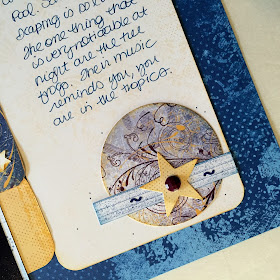 Pool.
The one thing that
is very noticeable at
night are the tree
frogs. Their music
reminds you, you
are in the tropics.